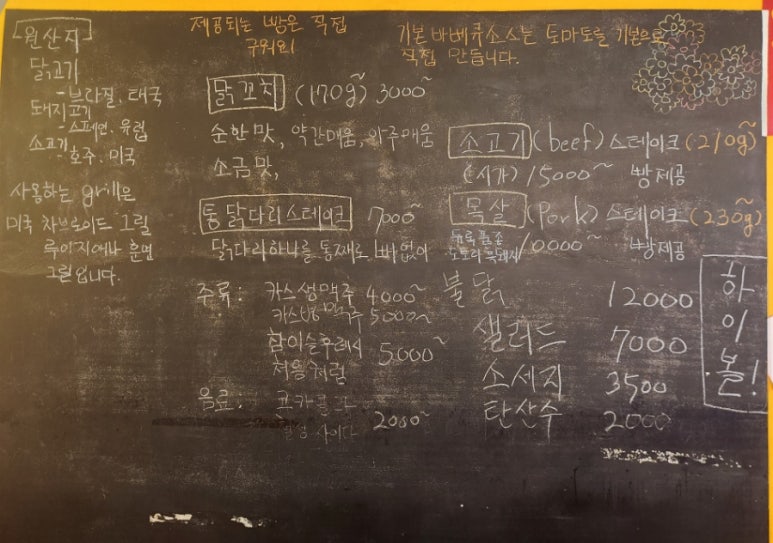 원산지
닭고기
- 브라질, 태국
돼지고기
- 스페인, 유럽
소고기
- 호주, 미국
사용하는 grill은
미국 차브로이드 그릴
루이지애나 훈연
그릴입니다.
제공되는 빵은 직접
구워요!
기본 바베큐소스는 토마토를 기본으로
직접 만듭니다.
닭꼬치 (170g~) 3000~
순한맛, 약간매움, 아주매움
소금맛,
통닭다리스테이크 7000~
닭다리하나를 통째로 뼈없이
소고기 (beef) 스테이크 (210g~)
(시가) 15000~ 빵제공
목살 (Pork) 스테이크 (230g~)
10000~ 빵제공
주류: 카스생맥주 4000~
카스병맥주 5000~
참이슬후레쉬
처음처럼 5000~
음료: 코카콜라
칠성 사이다 2000~
불닭 12000
샐러드 7000
소세지 3500
탄산수 2000
하이볼!